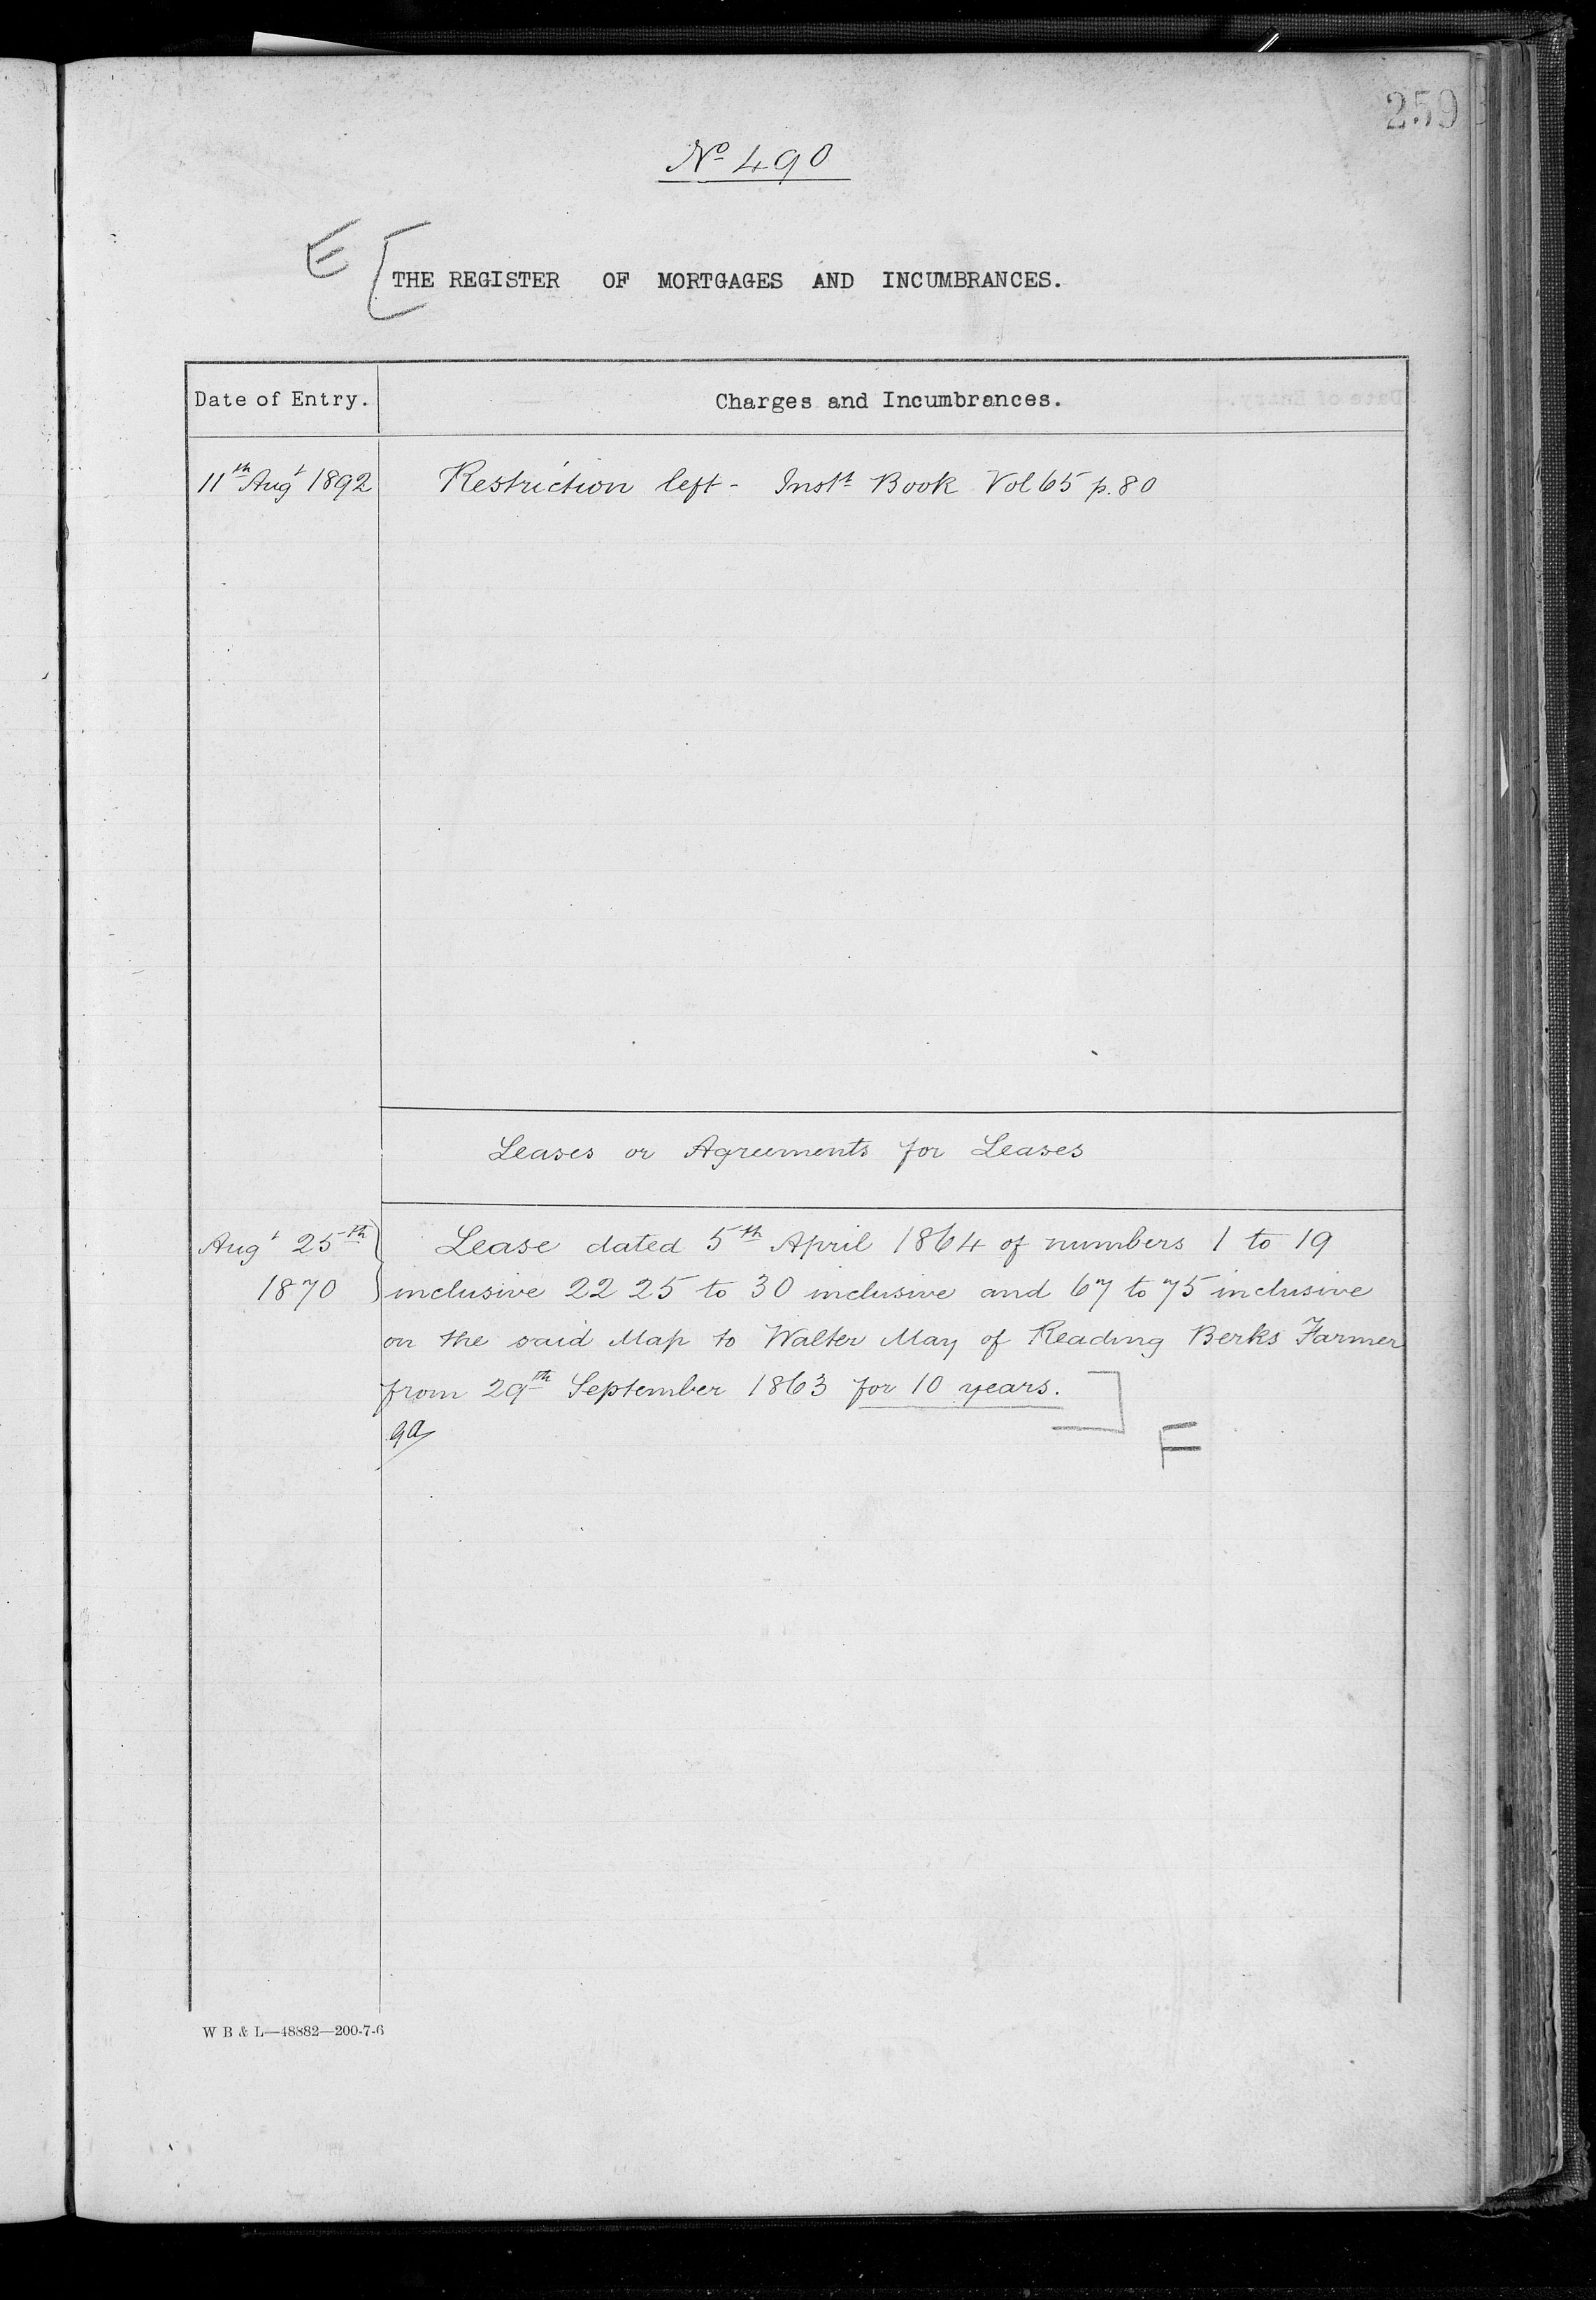 259
Nº 490
E
THE REGISTER OF MORTGAGES AND INCUMBRANCES.
Date of Entry.
Charges and Incumbrances.
11th Augt 1892
Restriction left - Instt Book Vol 65 p. 80
Leases or Agreements for Leases
Augt 25th
1870
Lease dated 5th April 1864 of numbers 1 to 19
inclusive 22 25 to 30 inclusive and 67 to 75 inclusive
on the said Map to Walter May of Reading Berks Farmer
from 29th September 1863 for 10 years.
F
W B & L—48882—200-7-6